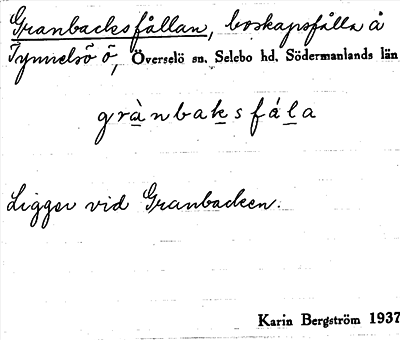 Granbacksfållan, boskapsfålla å
Tynnelsö ö, Överselö sn. Selebo hd. Södermanlands län
grànbaksfála
Ligger vid Granbacken.
Karin Bergström 1937